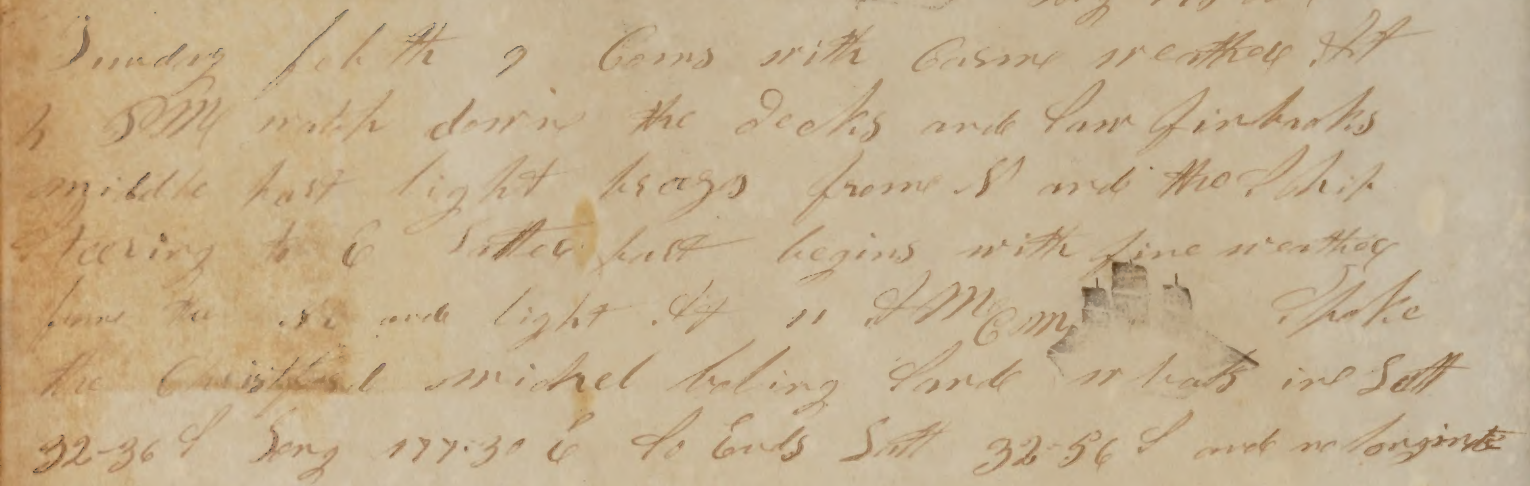 Sunday feb th 9 Coms with Carme weather At
PM watch down the decks and Saw finbacks
middle part light brezs frome N and the Ship
Steering to E Latter part begins with fine weather
frome the N and light At 11 AM Spoke
the michel boling Sande whals ine Latt
32-36 S Long 177.30 E So Ends Latt 32-56 S and no longinte